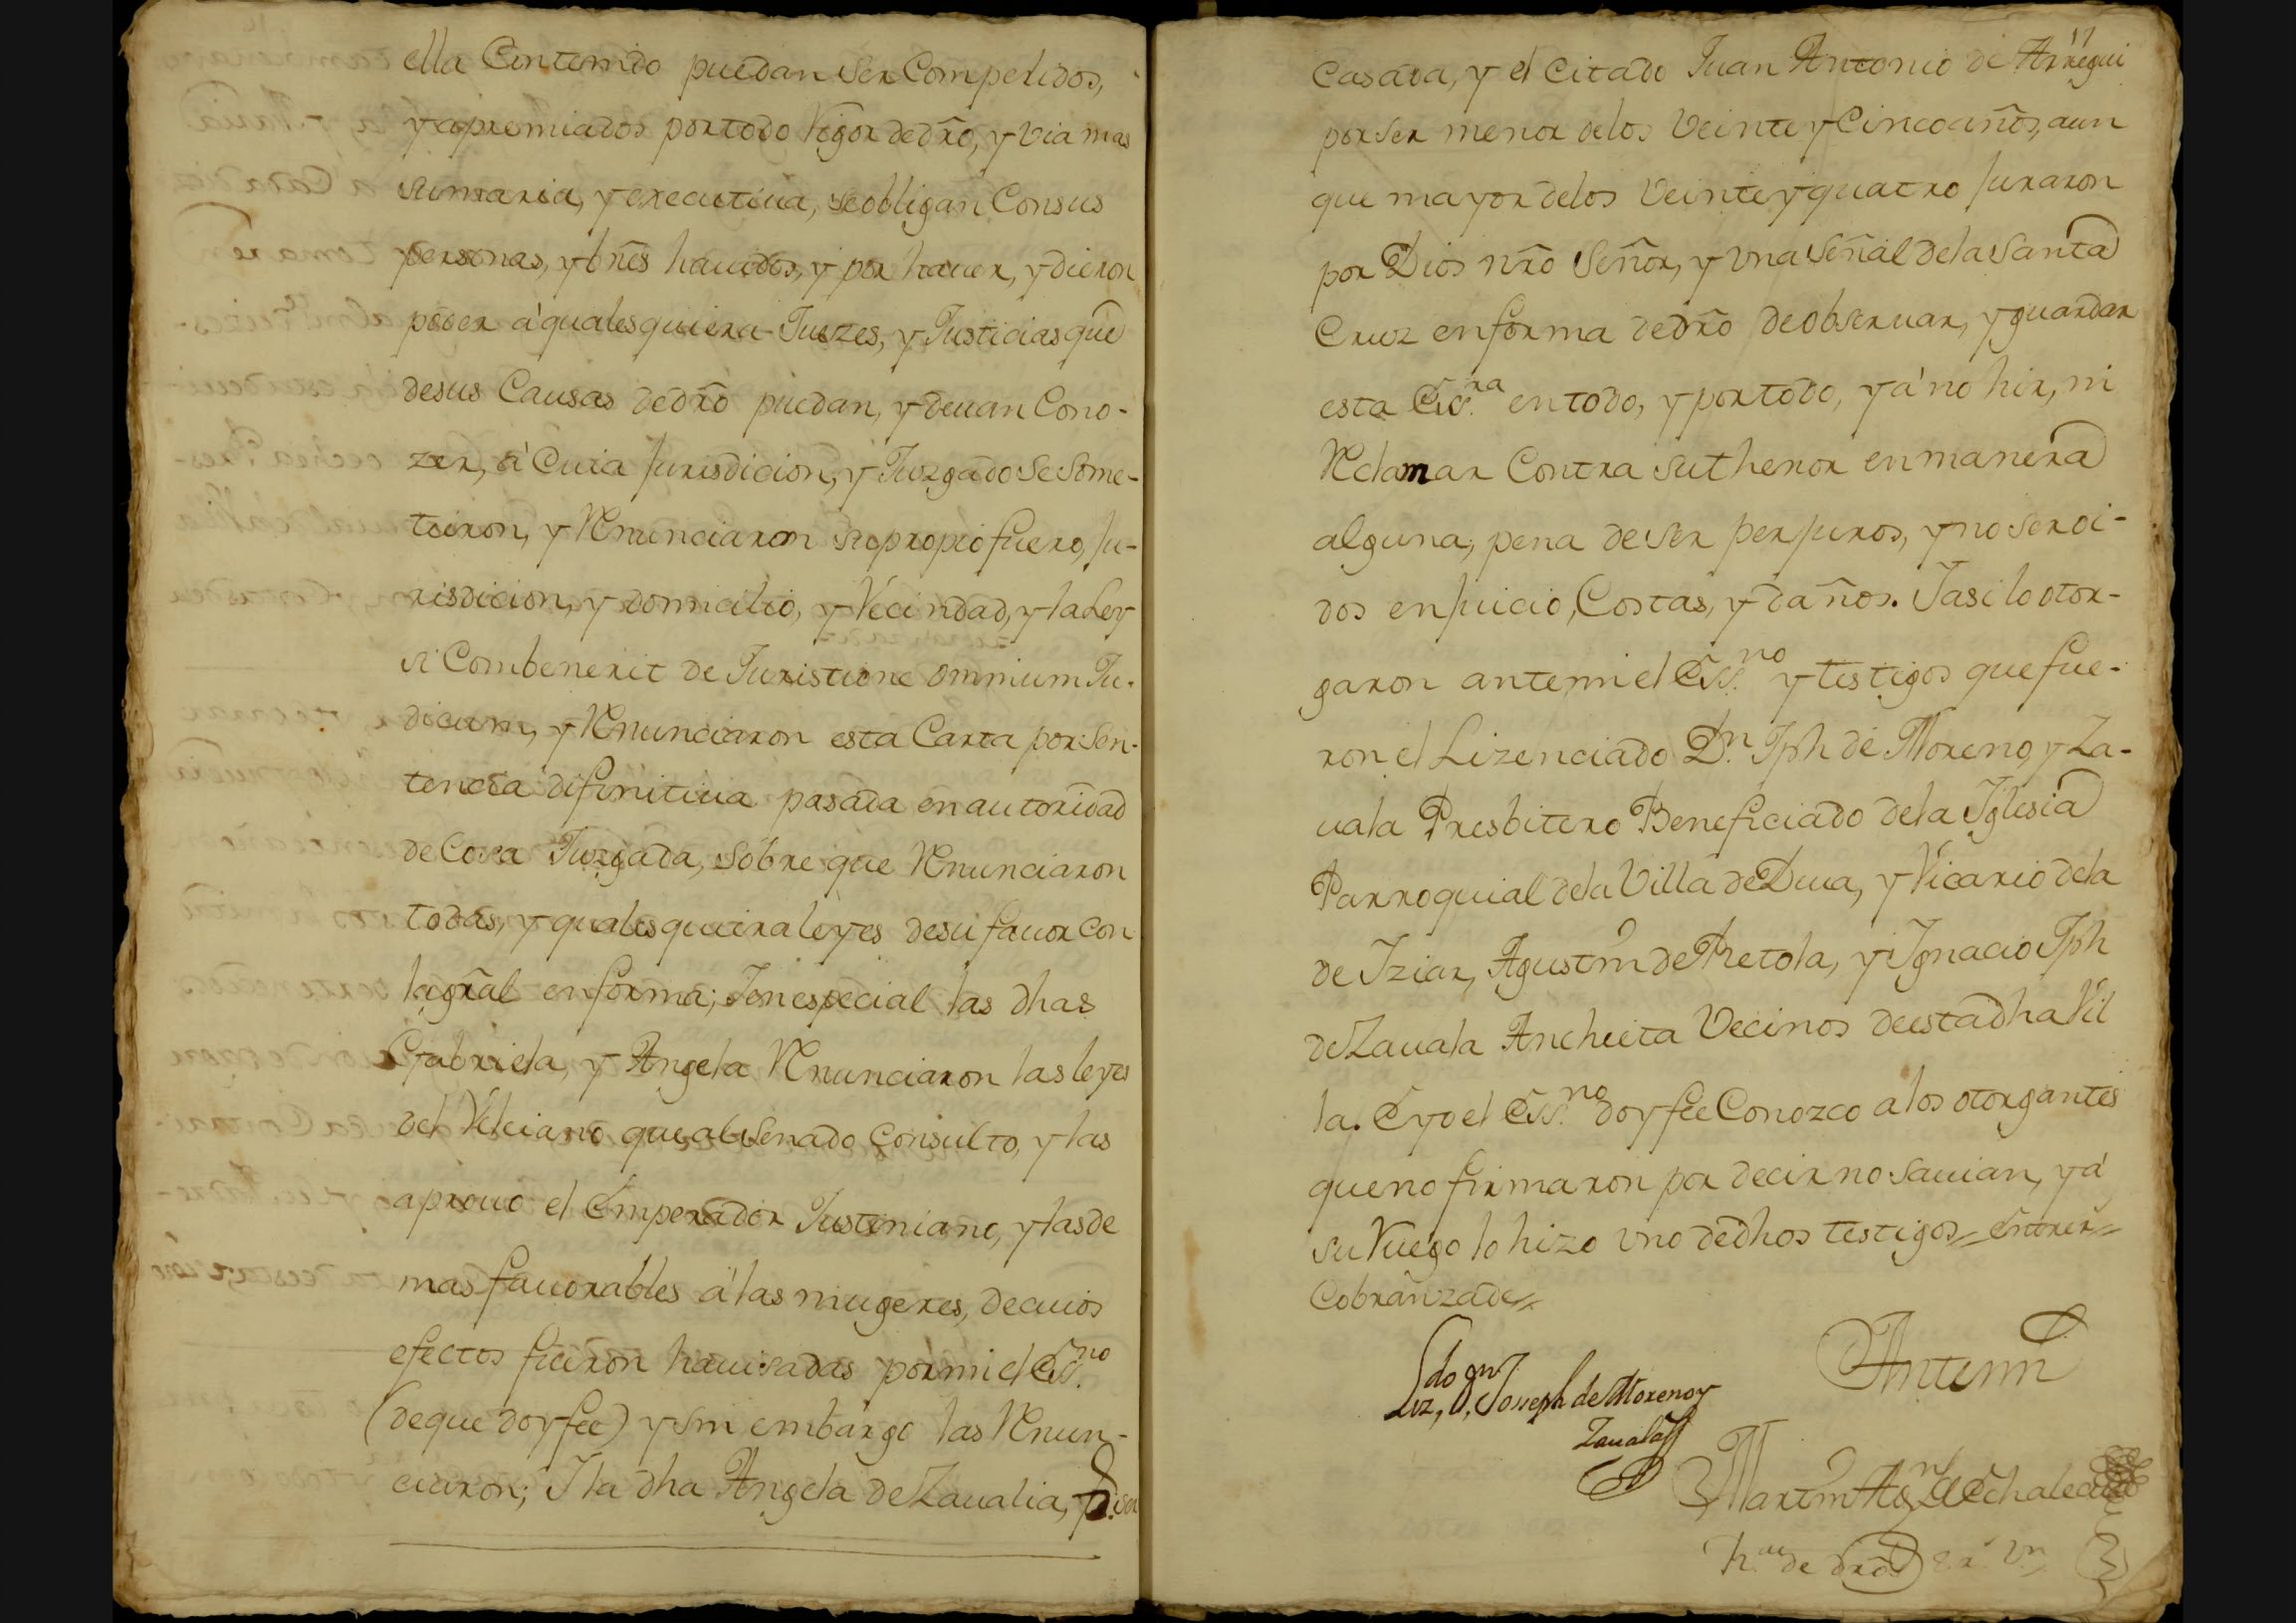 ella Contenido puedan ser Compelidos,
y apremiados por todo Rigor de dr̃o, y via mas
sumaria, y executiua, se obligan Con sus
personas, y bñes hauidos, y por hauer, y dieron
poder á quales quiera Juezes, y Justicias que
de sus Causas de dr̃o puedan, y deuan Cono-
zer, á Cuia Jurisdicion, y Juzgado se some-
tieron, y Renunciaron su propio fuero, Ju-
risdicion, y domicilio, y Vecindad, y la Ley
si Combenerit de Juristione omnium Ju-
dicum, y Renunciaron esta Carta por Sen-
tencia difinitiua pasada en autoridad
de Cosa Juzgada, sobre que Renunciaron
todas, y quales quiera leyes de su fauor con
la gr̃al en forma; Y en especial las dhas
Gabriela, y Angela Renunciaron las leyes
del Veleiano que al Senado Consulto, y las
aprouo el Emperador Justiniano, y las de
mas fauorables á las mugeres, de cuios
efectos fueron hauisadas por mi el Ess.no
(de que doy fee) y sin embargo las Renun-
ciaron; Y la dha Angela de Zaualia, p.r ser
17
Casada, y el citado Juan Antonio de Arregui
por ser menor de los Veinte y Cinco años, aun
que mayor de los Veinte y quatro Juraron
por Dios nr̃o Señor, y vna Señal de la Santa
Cruz en forma de dr̃o de obseruar, y guardar
esta Ess.ra en todo, y por todo, y á no hir, ni
Reclamar Contra su thenor en manera
alguna, pena de ser perjuros, y no ser oi-
dos en juicio, Costas, y daños. Y asi lo otor-
garon ante mi el Ess.no y testigos que fue-
ron el Lizenciado D.n Jph de Moreno, y Za-
uala Presbitero Beneficiado de la Iglesia
Parroquial de la Villa de Deua, y Vicario de la
de Iziar, Agustin de Aretola, y Ignacio Jph
de Zauala Anchieta Vecinos de esta dha Vil
la. E yo el Ess.no doy fee Conozco a los otorgantes
que no firmaron por decir no sauian, y á
su Ruego lo hizo vno de dhos testigos // Entrer //
Cobranza de //
Liz,do D.n Joseph de Moreno y
Zauala
Ante mi
Martin de Echaleca
de dr̃os